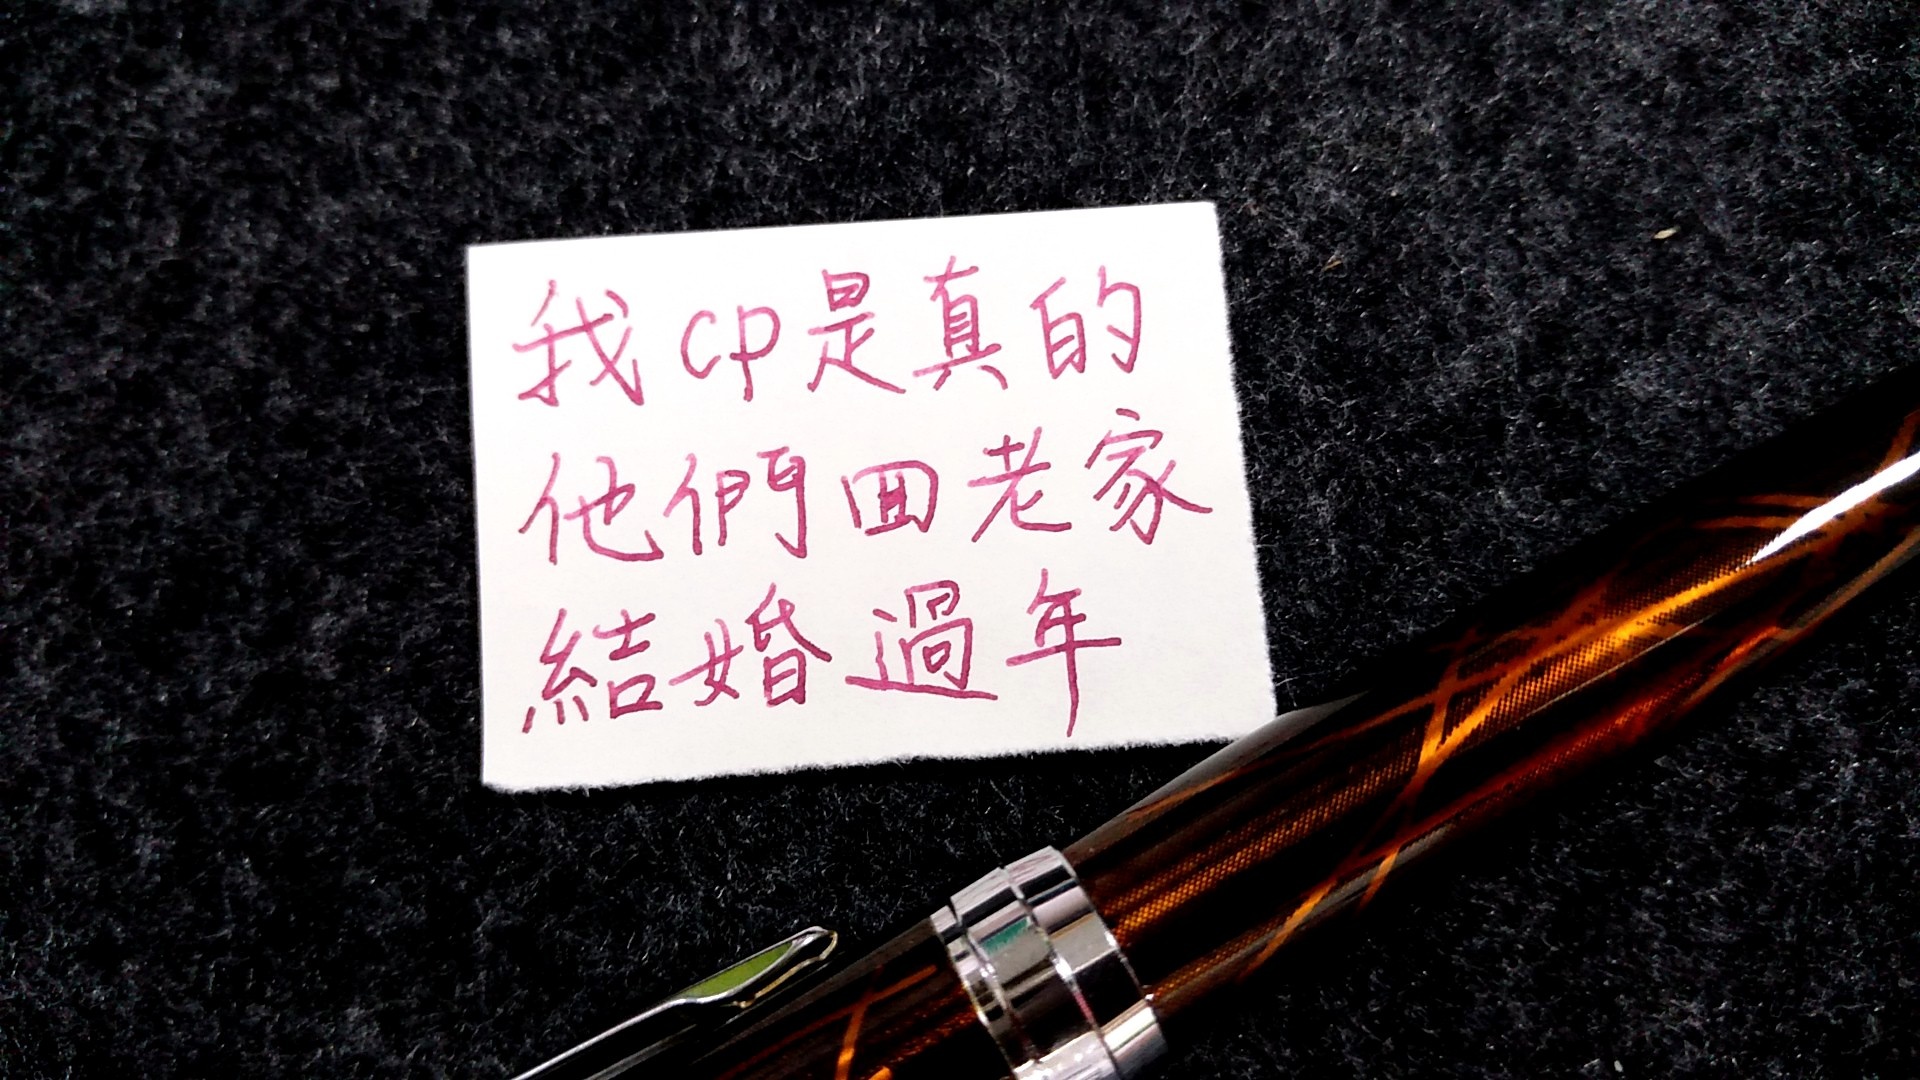 我cp是真的
他們回老家
結婚過年